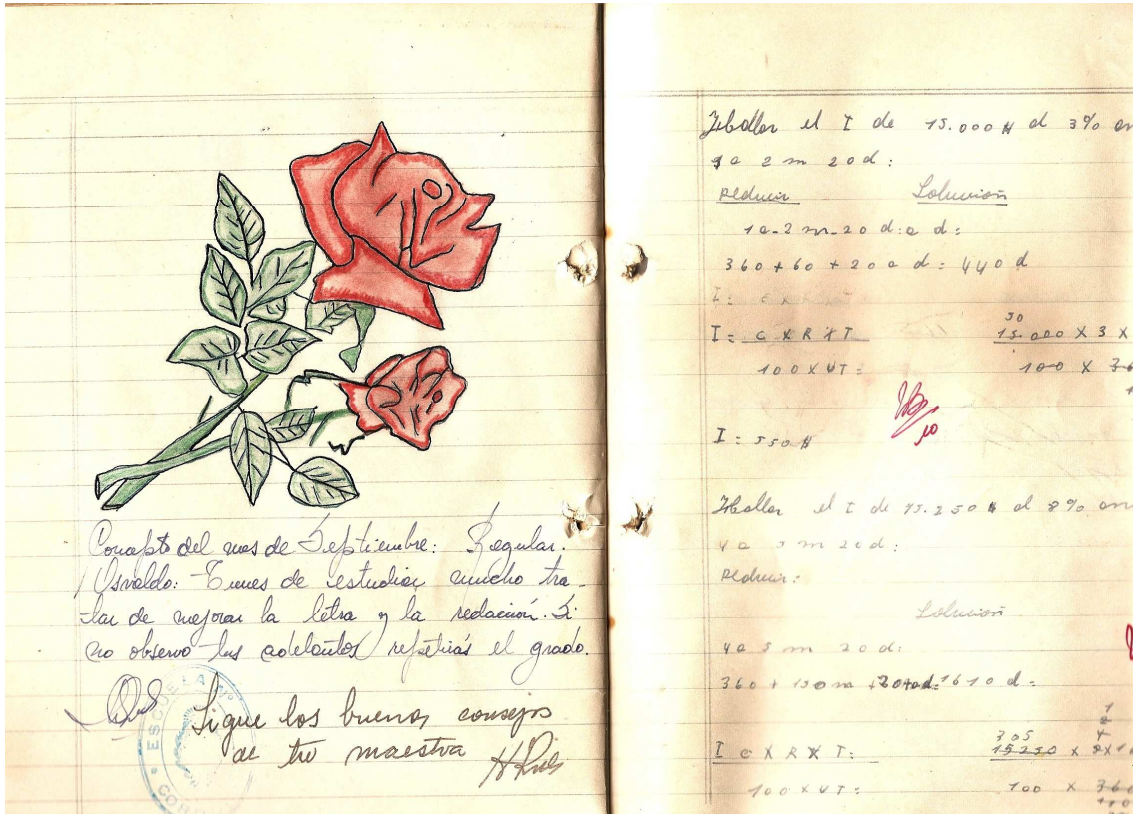 Concepto del mes de Septiembre: Regular.
Osvaldo: Tienes de estudiar mucho tra-
tar de mejorar la letra y la redacción. Si
no observo tus adelantos repetirás el grado.
ESCUELA Nº
Sigue los buenos consejos
de tu maestra
Hballar el I de 15.000 $ al 3% an
1a 2 m 20 d:
Reducir Solución
1a-2 m-20 d:a d:
360 + 60 + 20 a d: 440 d
I:
I= C X R X T
30
15.000 X 3 X
100 X UT:
100 X 36
10
I = 550 $
Hallar el I de 15.250 $ al 8% an
4a 5 m 20d:
Reducir:
Solución
4a 5 m 20 d:
360 + 150 m + 20 1610 d:
I C X R X T:
305
15250 X
100 X UT:
100 X 360